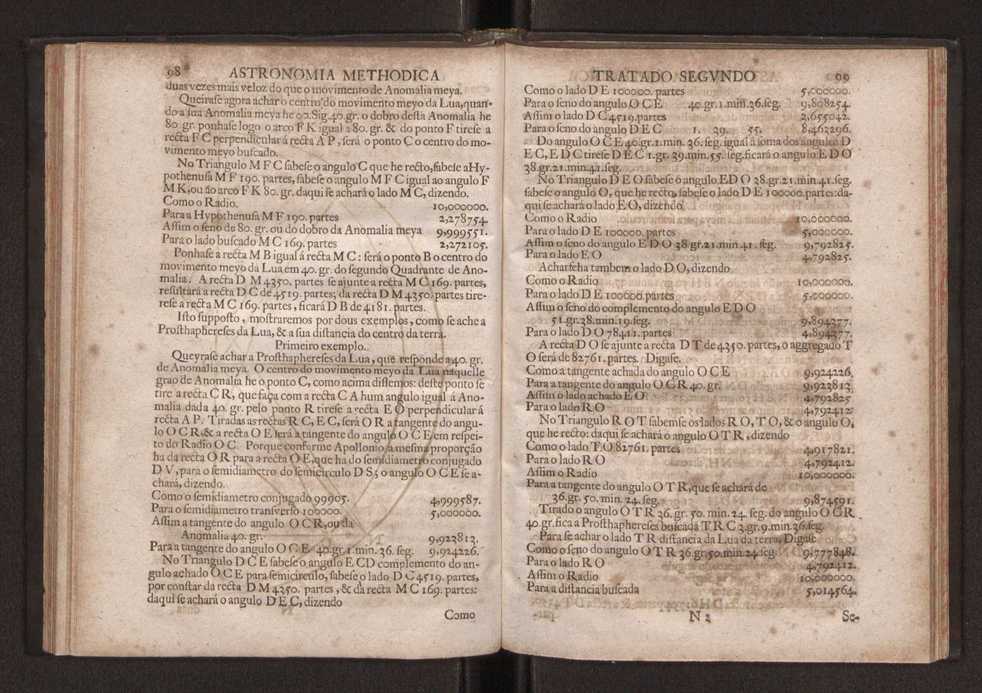 98 ASTRONOMIA METHODICA
duas vezes mais veloz do que o movimento de Anomalia meya.
Queirase agora achar o centro do movimento meyo da Lua, quan-
do a sua Anomalia meya he 00.Sig.40.gr. o dobro desta Anomalia he
80 gr. ponhase logo o arco F K igual a 80. gr. & do ponto F tirese a
recta F C perpendicular á recta A P, será o ponto C o centro do mo-
vimento meyo buscado.
No Triangulo M F C sabese o angulo C que he recto, sabese a Hy-
pothenusa M F 190. partes, sabese o angulo M F C igual ao angulo F
M K, ou áo arco F K 80. gr. daqui se achará o lado M C, dizendo.
Como o Radio. 10,000000.
Para a Hypothenusa M F 190. partes 2,278754.
Assim o seno de 80. gr. ou do dobro da Anomalia meya 9,999551.
Para o lado buscado M C 169. partes 2,272105.
Ponhase a recta M B igual á recta M C: será o ponto B o centro do
movimento meyo da Lua em 40. gr. do segundo Quadrante de Ano-
malia. A recta D M 4350. partes se ajunte a recta M C 169. partes,
resultará a recta D C de 4519. partes; da recta D M 4350. partes tire-
rese a recta M C 169. partes, ficará D B de 4181. partes.
Isto supposto, mostraremos por dous exemplos, como se ache a
Prosthaphereses da Lua, & a sua distancia do centro da terra.
Primeiro exemplo.
Queyrase achar a Prosthaphereses da Lua, que responde a 40. gr.
de Anomalia meya. O centro do movimento meyo da Lua naquelle
grao de Anomalia he o ponto C, como acima dissemos: deste ponto se
tire a recta C R, que faça com a recta C A hum angulo igual á Ano-
malia dada 40. gr. pelo ponto R tirese a recta E O perpendicular á
recta A P. Tiradas as rectas R C, E C, será O R a tangente do angu-
lo O C R, & a recta O E será a tangente do angulo O C E em respei-
to do Radio O C. Porque conforme Apollonio a mesma proporção
ha da recta O R para a recta O E, que ha do semidiametro conjugado
D V, para o semidiametro do semicirculo D S; o angulo O C E se a-
chará, dizendo.
Como o semidiametro conjugado 99905. 4,999587.
Para o semidiametro transverso 100000. 5,000000.
Assim a tangente do angulo O C R, ou da
Anomalia 40. gr. 9,923813.
Para a tangente do angulo O C E 40. gr. 1. min. 36. seg. 9,924226.
No Triangulo D C E sabese o angulo E C D complemento do an-
gulo achado O C E para semicirculo, sabese o lado D C 4519. partes,
por constar da recta D M 4350. partes, & da recta M C 169. partes:
daqui se achará o angulo D E C, dizendo
Como
TRATADO SEGVNDO 99
Como o lado D E 100000. partes 5,000000.
Para o seno do angulo O C E 40. gr. 1. min. 36. seg. 9,808254.
Assim o lado D C 4519. partes 3,655042.
Para o seno do angulo D E C 1. 39. 55. 8,463296.
Do angulo O C E 40. gr. 1. min. 36. seg. igual á soma dos angulos D
E C, E D C tirese D E C 1. gr. 39. min. 55. seg. ficará o angulo E D O
38. gr. 21. min. 41. seg.
No Triangulo D E O sabese o angulo. E D O 38. gr. 21. min. 41. seg.
sabese o angulo O, que he recto, sabese o lado D E 100000. partes: da-
qui se achará o lado E O, dizendo
Como o Radio 10,000000.
Para o lado D E 100000. partes 5,000000.
Assim o seno do angulo E D O 38 gr. 21. min. 41. seg. 9,792825.
Para o lado E O 4,792825.
Acharseha tambem o lado D O, dizendo.
Como o Radio 10,000000.
Para o lado D E 100000. partes 5,000000.
Assim o seno do complemento do angulo E D O
51. gr. 38. min. 19. seg. 9,894377.
Para o lado D O 78411. partes 4,894377.
A recta D O se ajunte a recta D T de 4350. partes, o aggregado T
O será de 82761. partes. Digase.
Como a tangente achada do angulo O C E 9,924226.
Para a tangente do angulo O C R 40. gr. 9,923813.
Assim o lado achado E O 4,792825
Para o lado R O 4,792412.
No Triangulo R O T sabemse os lados R O, T O, & o angulo O,
que he recto: daqui se achará o angulo O T R, dizendo
Como o lado T O 82761. partes 4,917821.
Para o lado R O 4,792412.
Assim o Radio 10,000000.
Para a tangente do angulo O T R, que se achará de
36. gr. 50. min. 24. seg. 9,874591.
Tirado o angulo O T R 36. gr. 50. min. 24. seg. do angulo O C R
40. gr. fica a Prosthaphereses buscada T R C 3. gr. 9. min. 36. seg.
Para se achar o lado T R distancia da Lua da terra, Digase
Como o seno do angulo O T R 36. gr. 50. min. 24 seg. 9,777848.
Para o lado R O 4,792412.
Assim o Radio 10,000000.
Para a distancia buscada 5,014564.
N 2 Se-